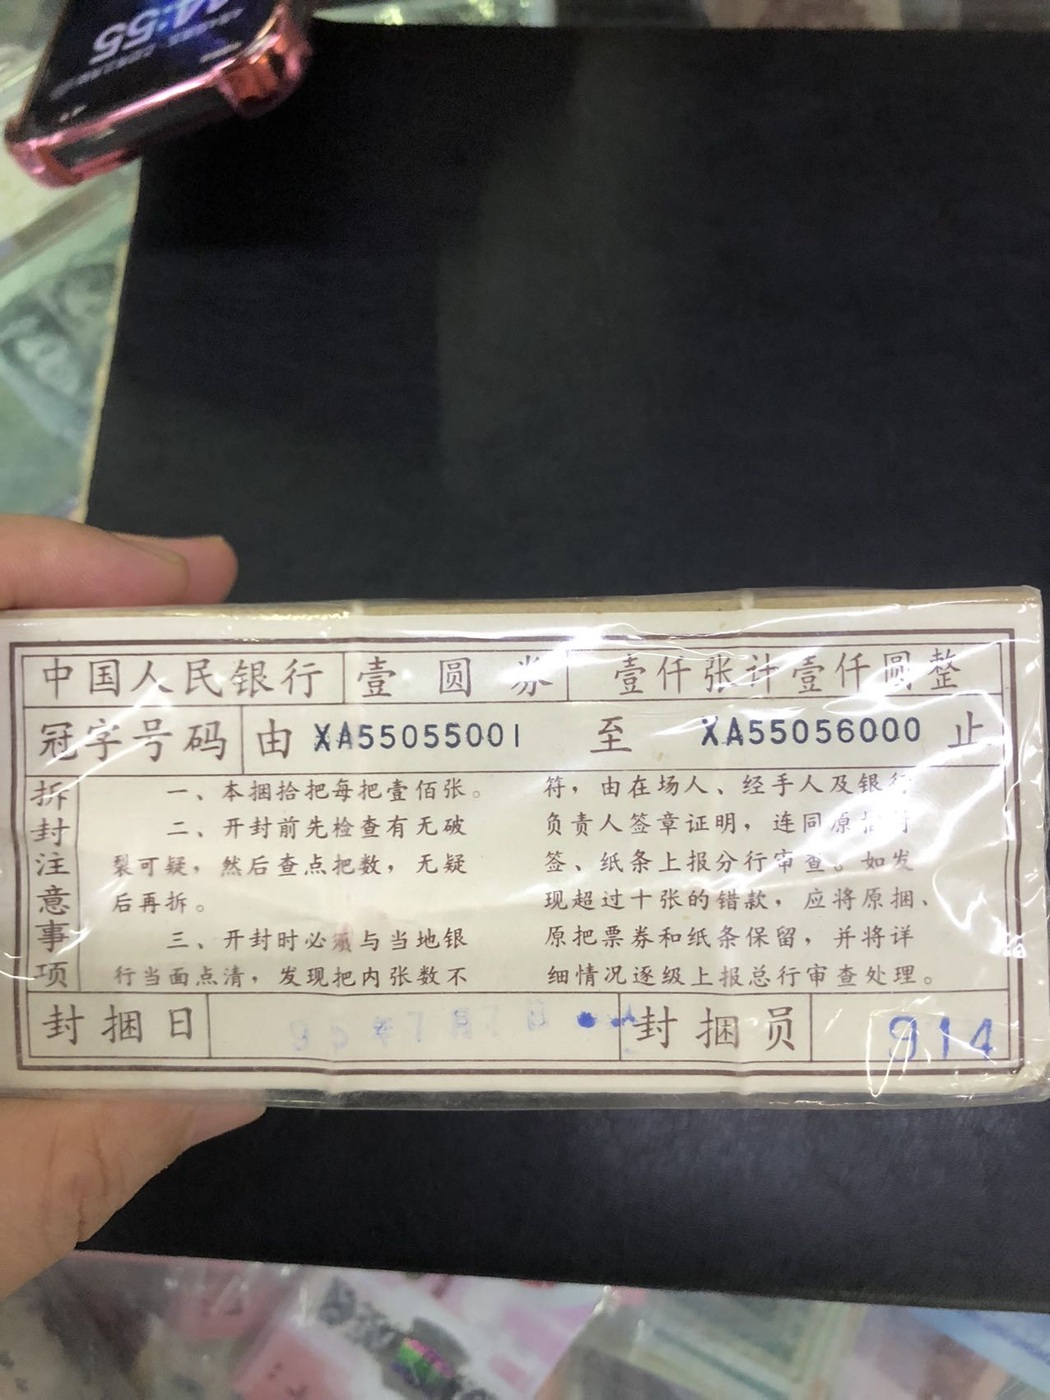 14:55
中国人民银行 壹圆券 壹仟张计壹仟圆整
冠字号码 由 XA55055001 至 XA55056000 止
拆封注意事项
一、本捆拾把每把壹佰张。
二、开封前先检查有无破
裂可疑，然后查点把数，无疑
后再拆。
三、开封时必须与当地银
行当面点清，发现把内张数不
符，由在场人、经手人及银行
负责人签章证明，连同原捆封
签、纸条上报分行审查。如发
现超过十张的错款，应将原捆、
原把票券和纸条保留，并将详
细情况逐级上报总行审查处理。
封捆日 封捆员 914